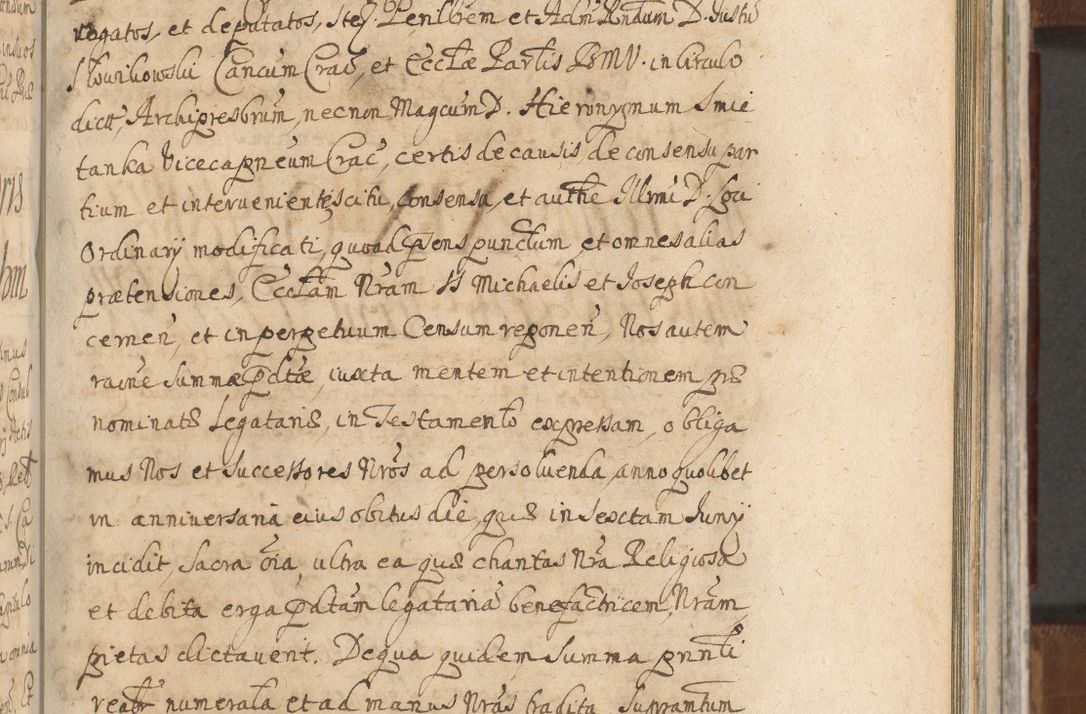 regatos, et deputatos, stej. Penlbem et Adm Rndum D. Justu
Slowikowski Cancum Crac, et Eccłæ Parlis BMV. in Circulo
dict, Archipresbrum, necnon Magcum D. Hieronymum Smie
tanka Vicecapneum Crac, certis de causis, de consensu par
tium et intervenientescitu, consensu, et authe Illrmi D. Loci
Ordinarij modificati, quoad pens punctum et omnes alias
prætensiones, Ecclam Nram SS Michaelis et Joseph con
cernen, et in perpetuum Censum reponen, Nos autem
raõne summæ pdtæ, iuxta mentem et intentionem præ
nominatæ Legatariæ, in Testamento expressam, obliga
mus Nos et Successores Nros ad persoluenda, anno quolibet
in anniversaria eius obitus die, quæ in sextam Junij
incidit, sacra õia ultra ea quæ charitas Nra Religiosa
et debita erga pdtam legataria benefactricem, Nram
pietas dictaverit. De qua quidem summa pnnti
realr numerata et ad manus Nras tradita supramtum